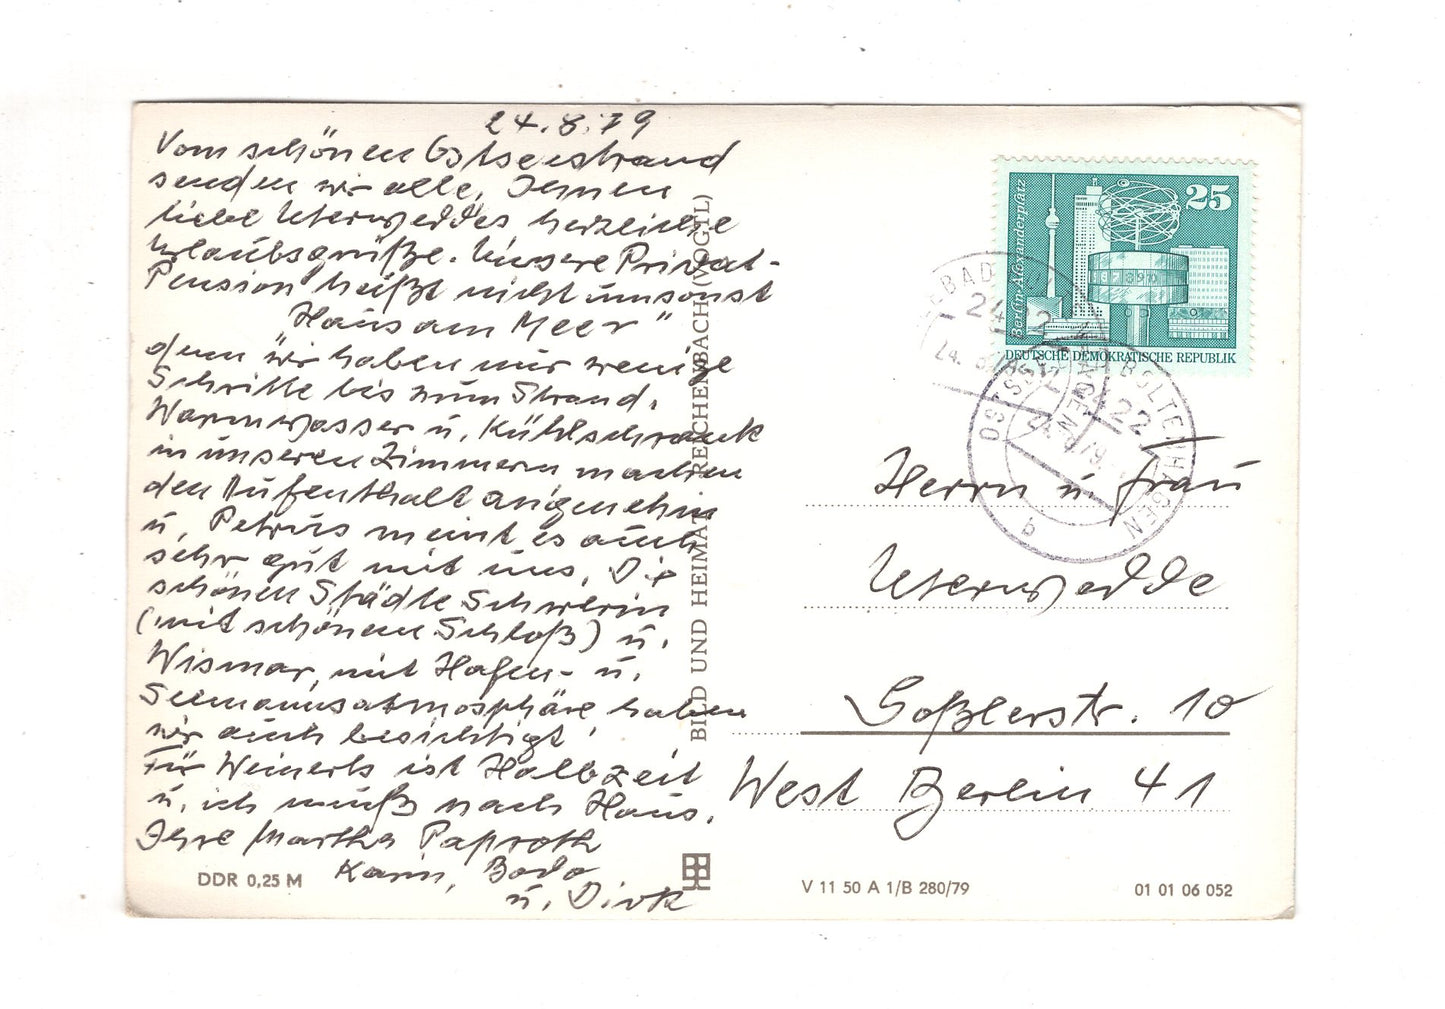 24.8.79
Vom schönen Ostseestrand
senden wir alle, Ihnen
liebe Uterweddes herzliche
Urlaubsgrüße. Unsere Privat-
Pension heißt nicht umsonst
"Haus am Meer"
denn wir haben nur wenige
Schritte bis zum Strand.
Warmwasser u. Kühlschrank
in unseren Zimmern machen
den Aufenthalt angenehm
u. Petrus meint es auch
sehr gut mit uns. Die
schönen Städte Schwerin
(mit schönem Schloß) u.
Wismar, mit Hafen- u.
Seemannsatmosphäre haben
wir auch besichtigt.
Für Weinerts ist Halbzeit
u. ich muß nach Haus.
Ihre Martha Paproth
Karin, Bodo
u. Dirk
DDR 0,25 M
BILD UND HEIMAT REICHENBACH (VOGTL)
Berlin-Alexanderplatz
25
DEUTSCHE DEMOKRATISCHE REPUBLIK
OSTSEEBAD BOLTENHAGEN
b
Herrn u. Frau
Uterwedde
Goßlerstr. 10
West Berlin 41
V 11 50 A 1/B 280/79
01 01 06 052